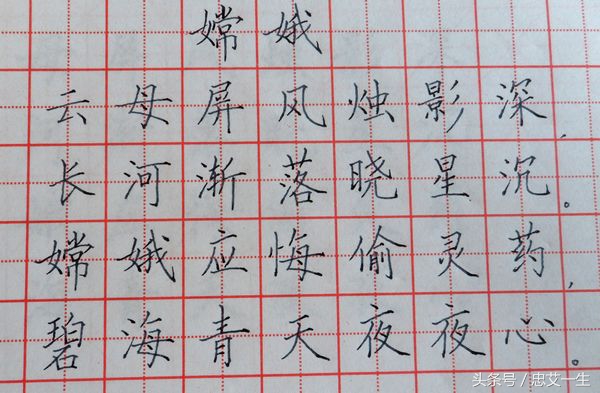 嫦娥
云母屏风烛影深，
长河渐落晓星沉。
嫦娥应悔偷灵药，
碧海青天夜夜心。
头条号／忠艾一生